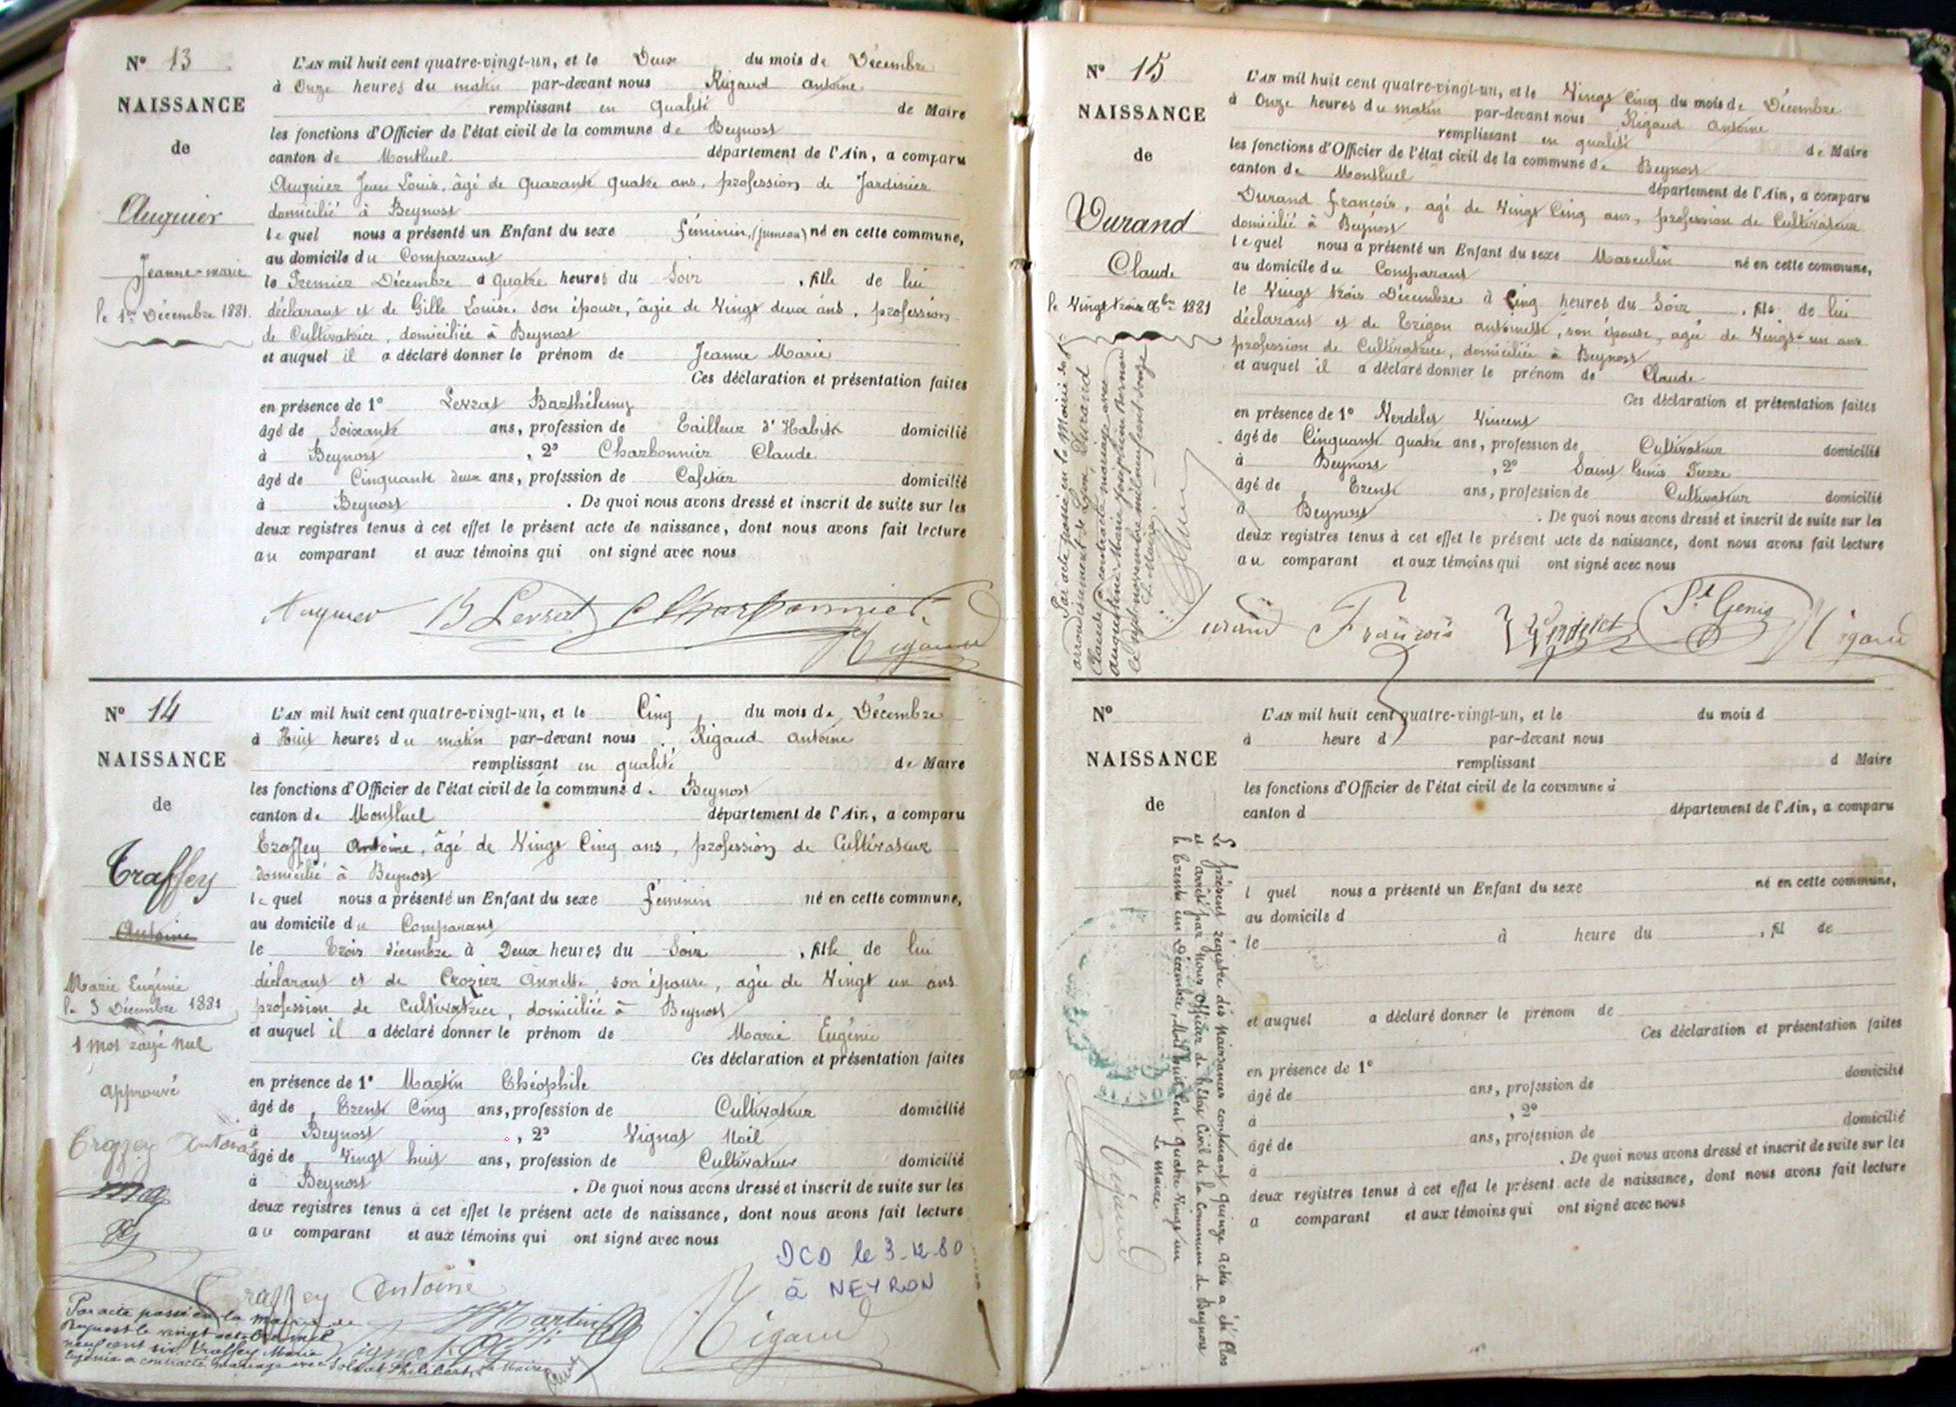 N° 13
NAISSANCE
de
Auguier
Jeanne-marie
le 1er Décembre 1881.
L'AN mil huit cent quatre-vingt-un, et le Deux du mois de Décembre
à Onze heures du matin par-devant nous Rigaud Antoine
remplissant en qualité de Maire
les fonctions d'Officier de l'état civil de la commune de Beynost
canton de Montluel département de l'Ain, a comparu
Auguier Jean Louis, âgé de Quarante quatre ans, profession de Jardinier
domicilié à Beynost
lequel nous a présenté un Enfant du sexe féminin, (jumeau) né en cette commune,
au domicile du Comparant
le Premier Décembre à quatre heures du Soir, fille de lui
déclarant et de Gille Louise son épouse, âgée de Vingt deux ans, profession
de Cultivatrice, domiciliée à Beynost
et auquel il a déclaré donner le prénom de Jeanne Marie
Ces déclaration et présentation faites
en présence de 1° Levrat Barthélemy
âgé de Soixante ans, profession de Tailleur d'Habits domicilié
à Beynost, 2° Charbonnier Claude
âgé de Cinquante deux ans, profession de Cafetier domicilié
à Beynost. De quoi nous avons dressé et inscrit de suite sur les
deux registres tenus à cet effet le présent acte de naissance, dont nous avons fait lecture
au comparant et aux témoins qui ont signé avec nous
Auguier B Levrat C Charbonnier
Rigaud
N° 14
NAISSANCE
de
Traffey
Antoine
Marie Eugénie
le 3 Décembre 1881
1 Mot rayé nul
Approuvé
Traffey Antoine
L'AN mil huit cent quatre-vingt-un, et le Cinq du mois de Décembre
à Huit heures du matin par-devant nous Rigaud Antoine
remplissant en qualité de Maire
les fonctions d'Officier de l'état civil de la commune de Beynost
canton de Montluel département de l'Ain, a comparu
Traffey Antoine, âgé de Vingt Cinq ans, profession de Cultivateur
domicilié à Beynost
lequel nous a présenté un Enfant du sexe féminin né en cette commune,
au domicile du Comparant
le Trois décembre à Deux heures du Soir, fille de lui
déclarant et de Crozier Annette, son épouse, agée de Vingt un ans
profession de cultivatrice, domiciliée à Beynost
et auquel il a déclaré donner le prénom de Marie Eugénie
Ces déclaration et présentation faites
en présence de 1° Martin Théophile
âgé de Trente Cinq ans, profession de Cultivateur domicilié
à Beynost, 2° Vignat Noël
âgé de Vingt huit ans, profession de Cultivateur domicilié
à Beynost. De quoi nous avons dressé et inscrit de suite sur les
deux registres tenus à cet effet le présent acte de naissance, dont nous avons fait lecture
au comparant et aux témoins qui ont signé avec nous
DCD le 3-12-80
à NEYRON
Traffey Antoine
Martin
Rigaud
Par acte passé en la mairie de
Beynost le vingt octobre mil
neuf cent six Traffey Marie
Eugénie a contracté mariage avec Philibert, Le Maire
N° 15
NAISSANCE
de
Durand
Claude
le Vingt trois Xbre 1881
Par acte passé en la Mairie du
arrondissement de Lyon, Durand
Claude a contracté mariage avec
Augustine Marie Joséphine
le sept novembre mil neuf cent onze
Le Maire
L'AN mil huit cent quatre-vingt-un, et le Vingt Cinq du mois de Décembre
à Onze heures du matin par-devant nous Rigaud Antoine
remplissant en qualité de Maire
les fonctions d'Officier de l'état civil de la commune de Beynost
canton de Montluel département de l'Ain, a comparu
Durand François, agé de Vingt Cinq ans, profession de Cultivateur
domicilié à Beynost
lequel nous a présenté un Enfant du sexe Masculin né en cette commune,
au domicile du Comparant
le Vingt trois Décembre à Cinq heures du Soir, fils de lui
déclarant et de Trigon Antoinette, son épouse, agée de Vingt-un ans
profession de Cultivatrice, domiciliée à Beynost
et auquel il a déclaré donner le prénom de Claude
Ces déclaration et présentation faites
en présence de 1° Verdelet Vincent
âgé de Cinquante quatre ans, profession de Cultivateur domicilié
à Beynost, 2° Saint Genis Pierre
âgé de Trente ans, profession de Cultivateur domicilié
à Beynost. De quoi nous avons dressé et inscrit de suite sur les
deux registres tenus à cet effet le présent acte de naissance, dont nous avons fait lecture
au comparant et aux témoins qui ont signé avec nous
Durand François Verdelet St Genis Rigaud
N°
NAISSANCE
de
L'AN mil huit cent quatre-vingt-un, et le du mois d
à heure d par-devant nous
remplissant d Maire
les fonctions d'Officier de l'état civil de la commune d
canton d département de l'Ain, a comparu
l quel nous a présenté un Enfant du sexe né en cette commune,
au domicile d
le à heure du , fil de
et auquel a déclaré donner le prénom de
Ces déclaration et présentation faites
en présence de 1°
âgé de ans, profession de domicilié
à , 2°
âgé de ans, profession de domicilié
à . De quoi nous avons dressé et inscrit de suite sur les
deux registres tenus à cet effet le présent acte de naissance, dont nous avons fait lecture
a comparant et aux témoins qui ont signé avec nous
Le présent régistre des Naissances contenant Quinze Actes a été Clos
et arrêté par Nous Officier de l'Etat Civil de la Commune de Beynost
le trente un Décembre, Mil huit Cent Quatre Vingt un
Le Maire
Rigaud